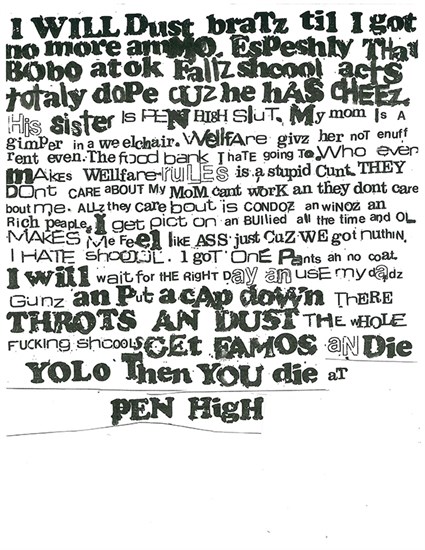 I WILL Dust braTz til I got
no more ammo. EsPeshly THat
BObo at ok Fallz shcool acts
totaly doPe CUZ he hAS CHEEZ.
His sister Is PEN HIGH SluT. My mom Is A
gimPer in a we elchair. WelfAre givz her noT enuff
rent even. The food bank I haTE going To. Who ever
mAKES WEllfare-rULES is a stupid Cunt. THEY
DOnt CARE aBOUT My MoM cant worK an they dont care
bout me. ALLz they care bout is CONDOZ an wiNOZ an
Rich peaple. I get pict on an BUllied all the time and OL
MAKES Me Feel lIKE ASS just CuZ WE got nuthIN.
I HATE shcooL. I goT onE Pants an no coat.
I will wait for tHE RIGHT Day an use my dadz
Gunz an Put a cAp down THERE
THROTS AN DUST THE wHOLE
FUCKING shcools GEt FAMOS aN Die
YOLO Then YOU die aT
PEN HigH